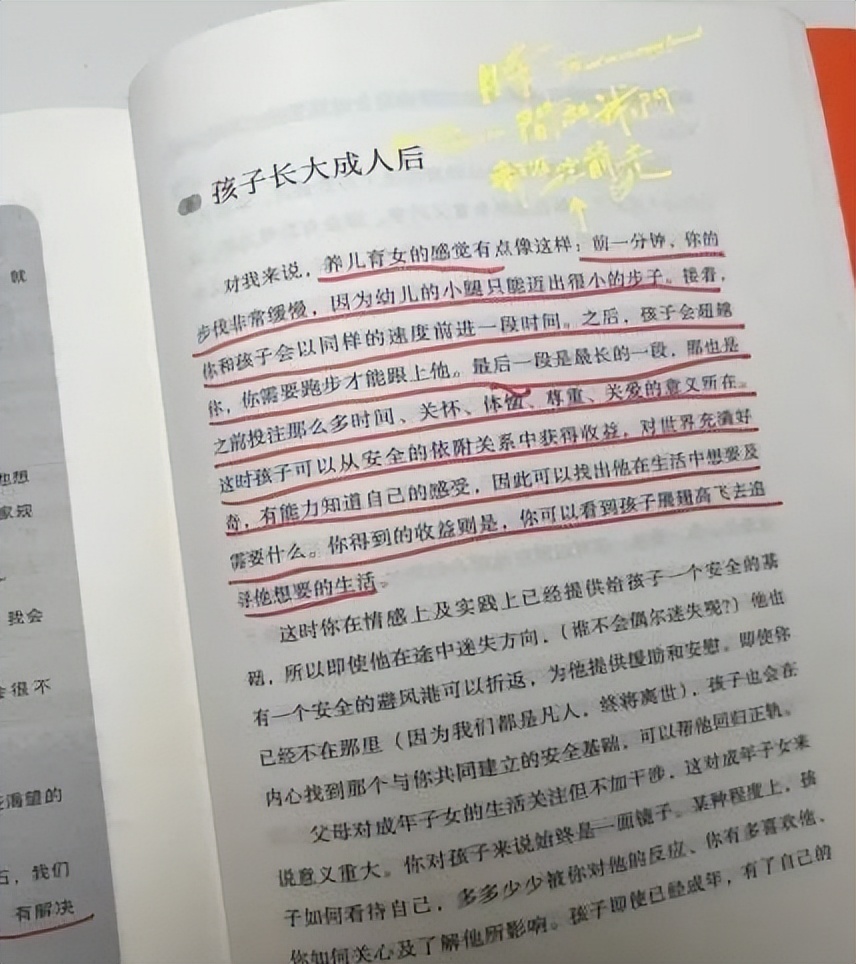 就
他想
家规
我会
会很不
渴望的
石，我们
有解决
孩子长大成人后
对我来说，养儿育女的感觉有点像这样：前一分钟，你的
步伐非常缓慢，因为幼儿的小腿只能迈出很小的步子。接着，
你和孩子会以同样的速度前进一段时间。之后，孩子会超越
你，你需要跑步才能跟上他。最后一段是最长的一段，那也是
之前投注那么多时间、关怀、体恤、尊重、关爱的意义所在。
这时孩子可以从安全的依附关系中获得收益，对世界充满好
奇，有能力知道自己的感受，因此可以找出他在生活中想要及
需要什么。你得到的收益则是，你可以看到孩子展翅高飞去追
寻他想要的生活。
这时你在情感上及实践上已经提供给孩子一个安全的基
础，所以即使他在途中迷失方向，（谁不会偶尔迷失呢？）他也
有一个安全的避风港可以折返，为他提供援助和安慰。即使你
已经不在那里（因为我们都是凡人，终将离世），孩子也会在
内心找到那个与你共同建立的安全基础，可以帮他回归正轨。
父母对成年子女的生活关注但不加干涉，这对成年子女来
说意义重大。你对孩子来说始终是一面镜子。某种程度上，孩
子如何看待自己，多多少少被你对他的反应、你有多喜欢他、
你如何关心及了解他所影响。孩子即使已经成年，有了自己的